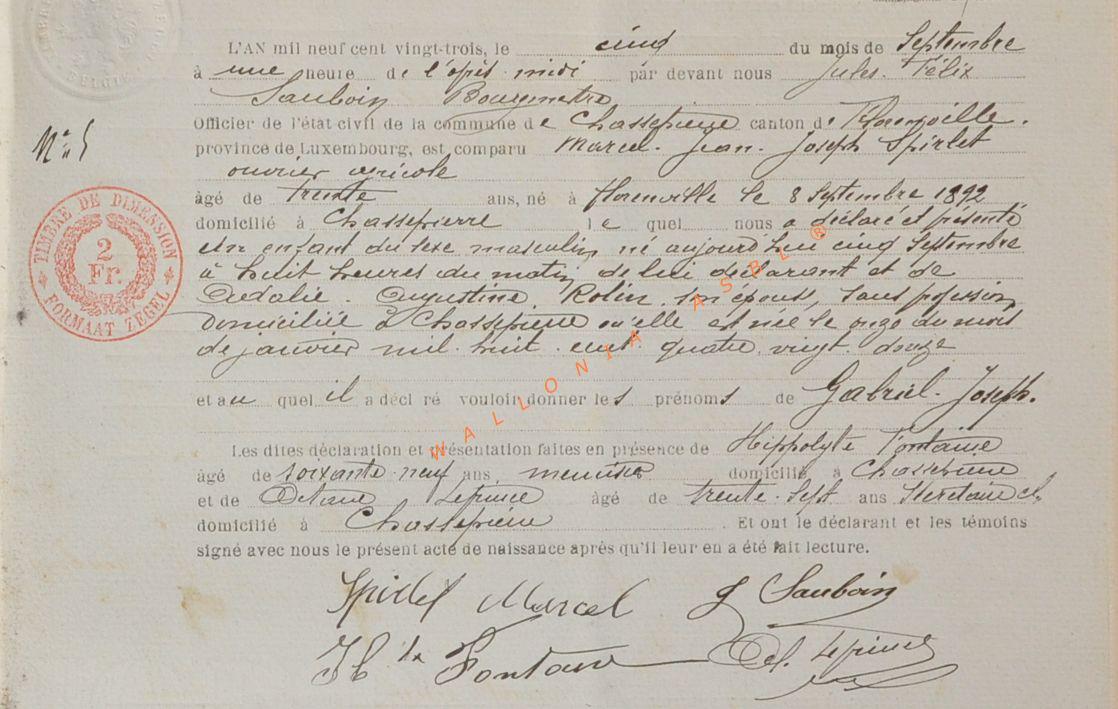 L'AN mil neuf cent vingt-trois, le cinq du mois de Septembre
à une heure de l'après midi par devant nous Jules. Félix
Sauboin Bourgmestre
Officier de l'état civil de la commune de Chassepierre canton de Florenville.
province de Luxembourg, est comparu Marcel. Jean. Joseph Spirlet
N° 5
ouvrier agricole
âgé de trente ans, né à Florenville le 8 Septembre 1892
domicilié à Chassepierre le quel nous a déclaré et présenté
un enfant du sexe masculin, né aujourd'hui cinq Septembre
à huit heures du matin, de lui déclarant et de
Augustine. Rolin, son épouse, sans profession
domiciliée à Chassepierre où elle est née le onze du mois
de janvier mil. huit. cent. quatre. vingt. douze
et au quel il a décl ré vouloir donner les prénoms de Gabriel. Joseph.
Les dites déclaration et présentation faites en présence de Hippolyte Fontaine
âgé de soixante neuf ans menuisier domicilié à Chassepierre
et de Octave Lepince âgé de trente-sept ans Secrétaire cl
domicilié à Chassepierre . Et ont le déclarant et les témoins
signé avec nous le présent acte de naissance après qu'il leur en a été fait lecture.
Spirlet Marcel J Sauboin
Fontaine Oct. Lepince
TIMBRE DE DIMENSION
2
Fr.
FORMAAT ZEGEL
WALLONIA ASBL ®